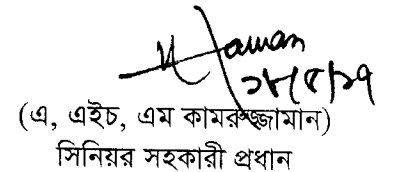 ২৮/৫/১৭
(এ, এইচ, এম কামরুজ্জামান)
সিনিয়র সহকারী প্রধান